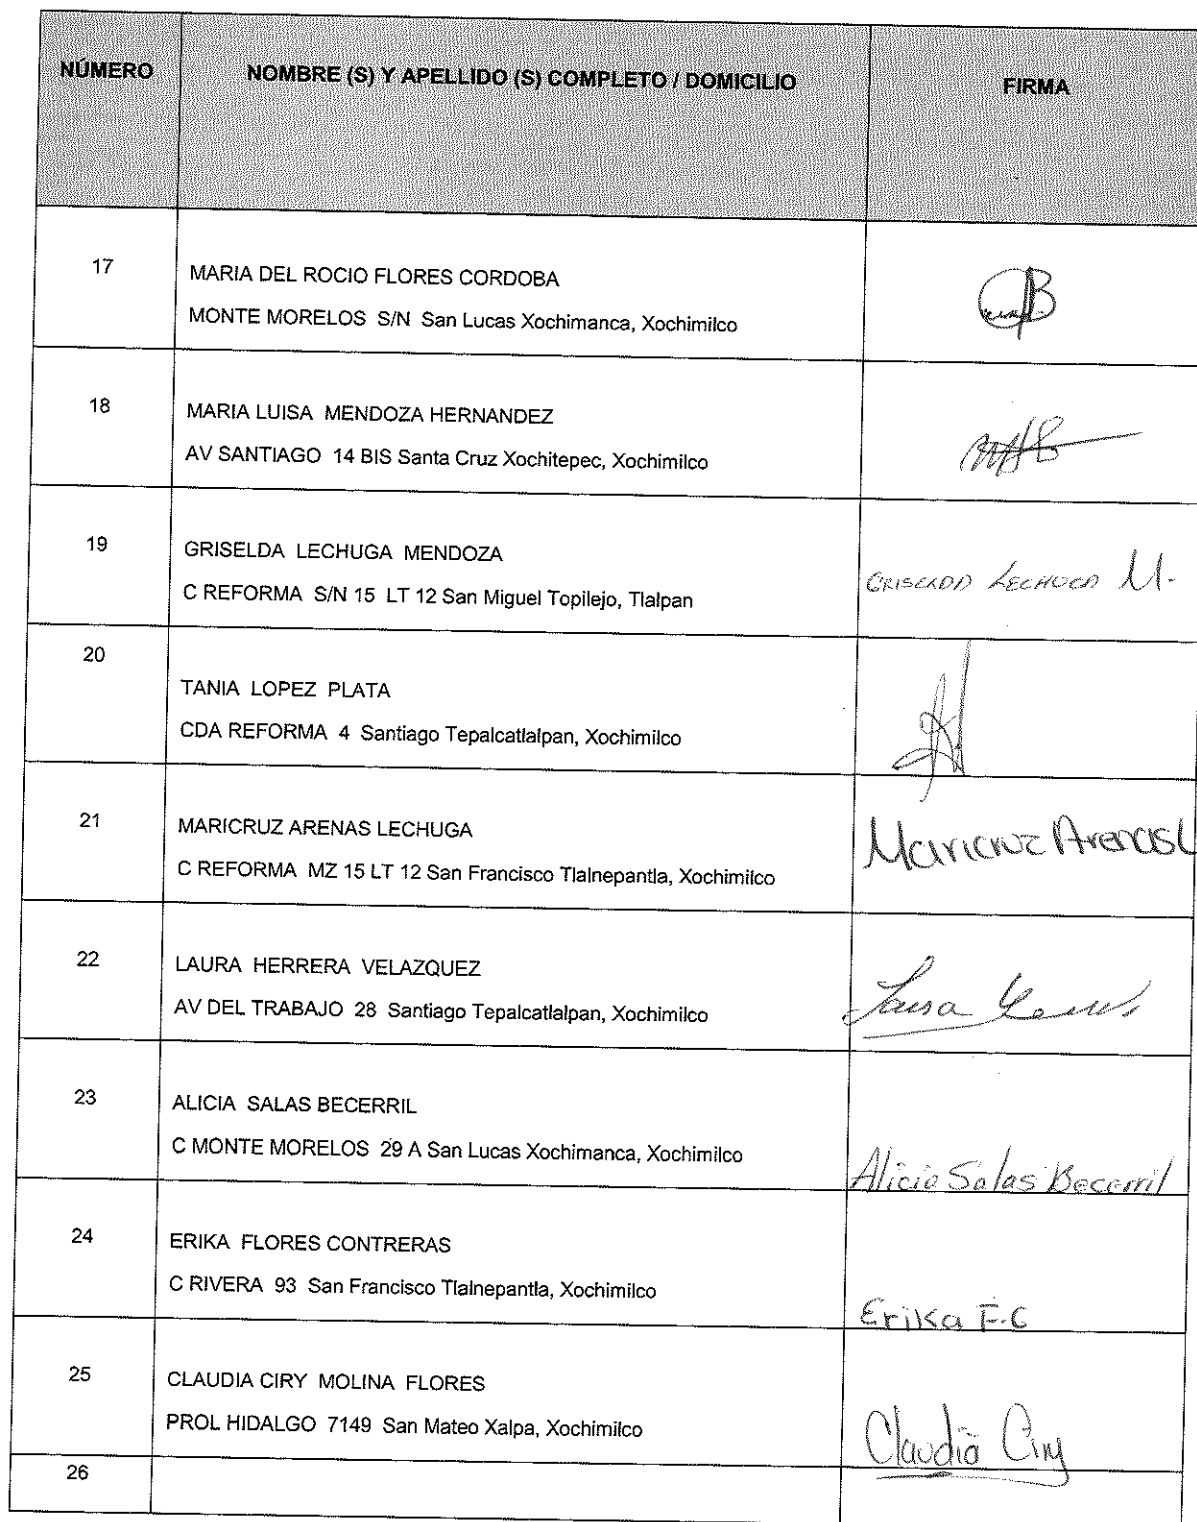 NÚMERO
NOMBRE (S) Y APELLIDO (S) COMPLETO / DOMICILIO
FIRMA
17
MARIA DEL ROCIO FLORES CORDOBA
MONTE MORELOS S/N San Lucas Xochimanca, Xochimilco
18
MARIA LUISA MENDOZA HERNANDEZ
AV SANTIAGO 14 BIS Santa Cruz Xochitepec, Xochimilco
19
GRISELDA LECHUGA MENDOZA
C REFORMA S/N 15 LT 12 San Miguel Topilejo, Tlalpan
GRISELDA LECHUGA M.
20
TANIA LOPEZ PLATA
CDA REFORMA 4 Santiago Tepalcatlalpan, Xochimilco
21
MARICRUZ ARENAS LECHUGA
C REFORMA MZ 15 LT 12 San Francisco Tlalnepantla, Xochimilco
Maricruz Arenas L
22
LAURA HERRERA VELAZQUEZ
AV DEL TRABAJO 28 Santiago Tepalcatlalpan, Xochimilco
Laura
23
ALICIA SALAS BECERRIL
C MONTE MORELOS 29 A San Lucas Xochimanca, Xochimilco
Alicia Salas Becerril
24
ERIKA FLORES CONTRERAS
C RIVERA 93 San Francisco Tlalnepantla, Xochimilco
Erika F.C
25
CLAUDIA CIRY MOLINA FLORES
PROL HIDALGO 7149 San Mateo Xalpa, Xochimilco
Claudia Ciry
26